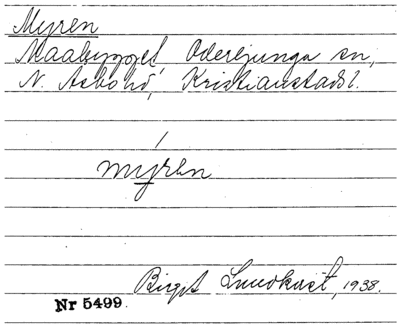 Myren
Maabygget, Oderljunga sn,
N. Åsbo hd, Kristianstads l.
myren
Birgit Lundkvist, 1938.
Nr 5499.